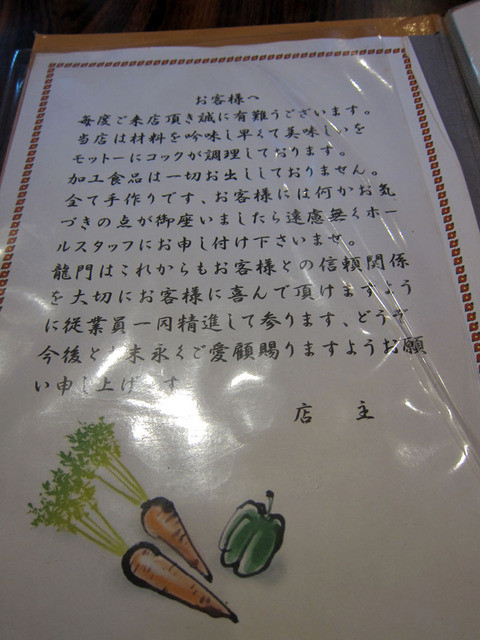 お客様へ
毎度ご来店頂き誠に有難うございます。
当店は材料を吟味し早くて美味しいを
モットーにコックが調理しております。
加工食品は一切お出ししておりません。
全て手作りです、お客様には何かお気
づきの点が御座いましたら遠慮無くホー
ルスタッフにお申し付け下さいませ。
龍門はこれからもお客様との信頼関係
を大切にお客様に喜んで頂けますよう
に従業員一同精進して参ります、どうぞ
今後と 末永くご愛顧賜りますようお願
い申し上げ す
店 主